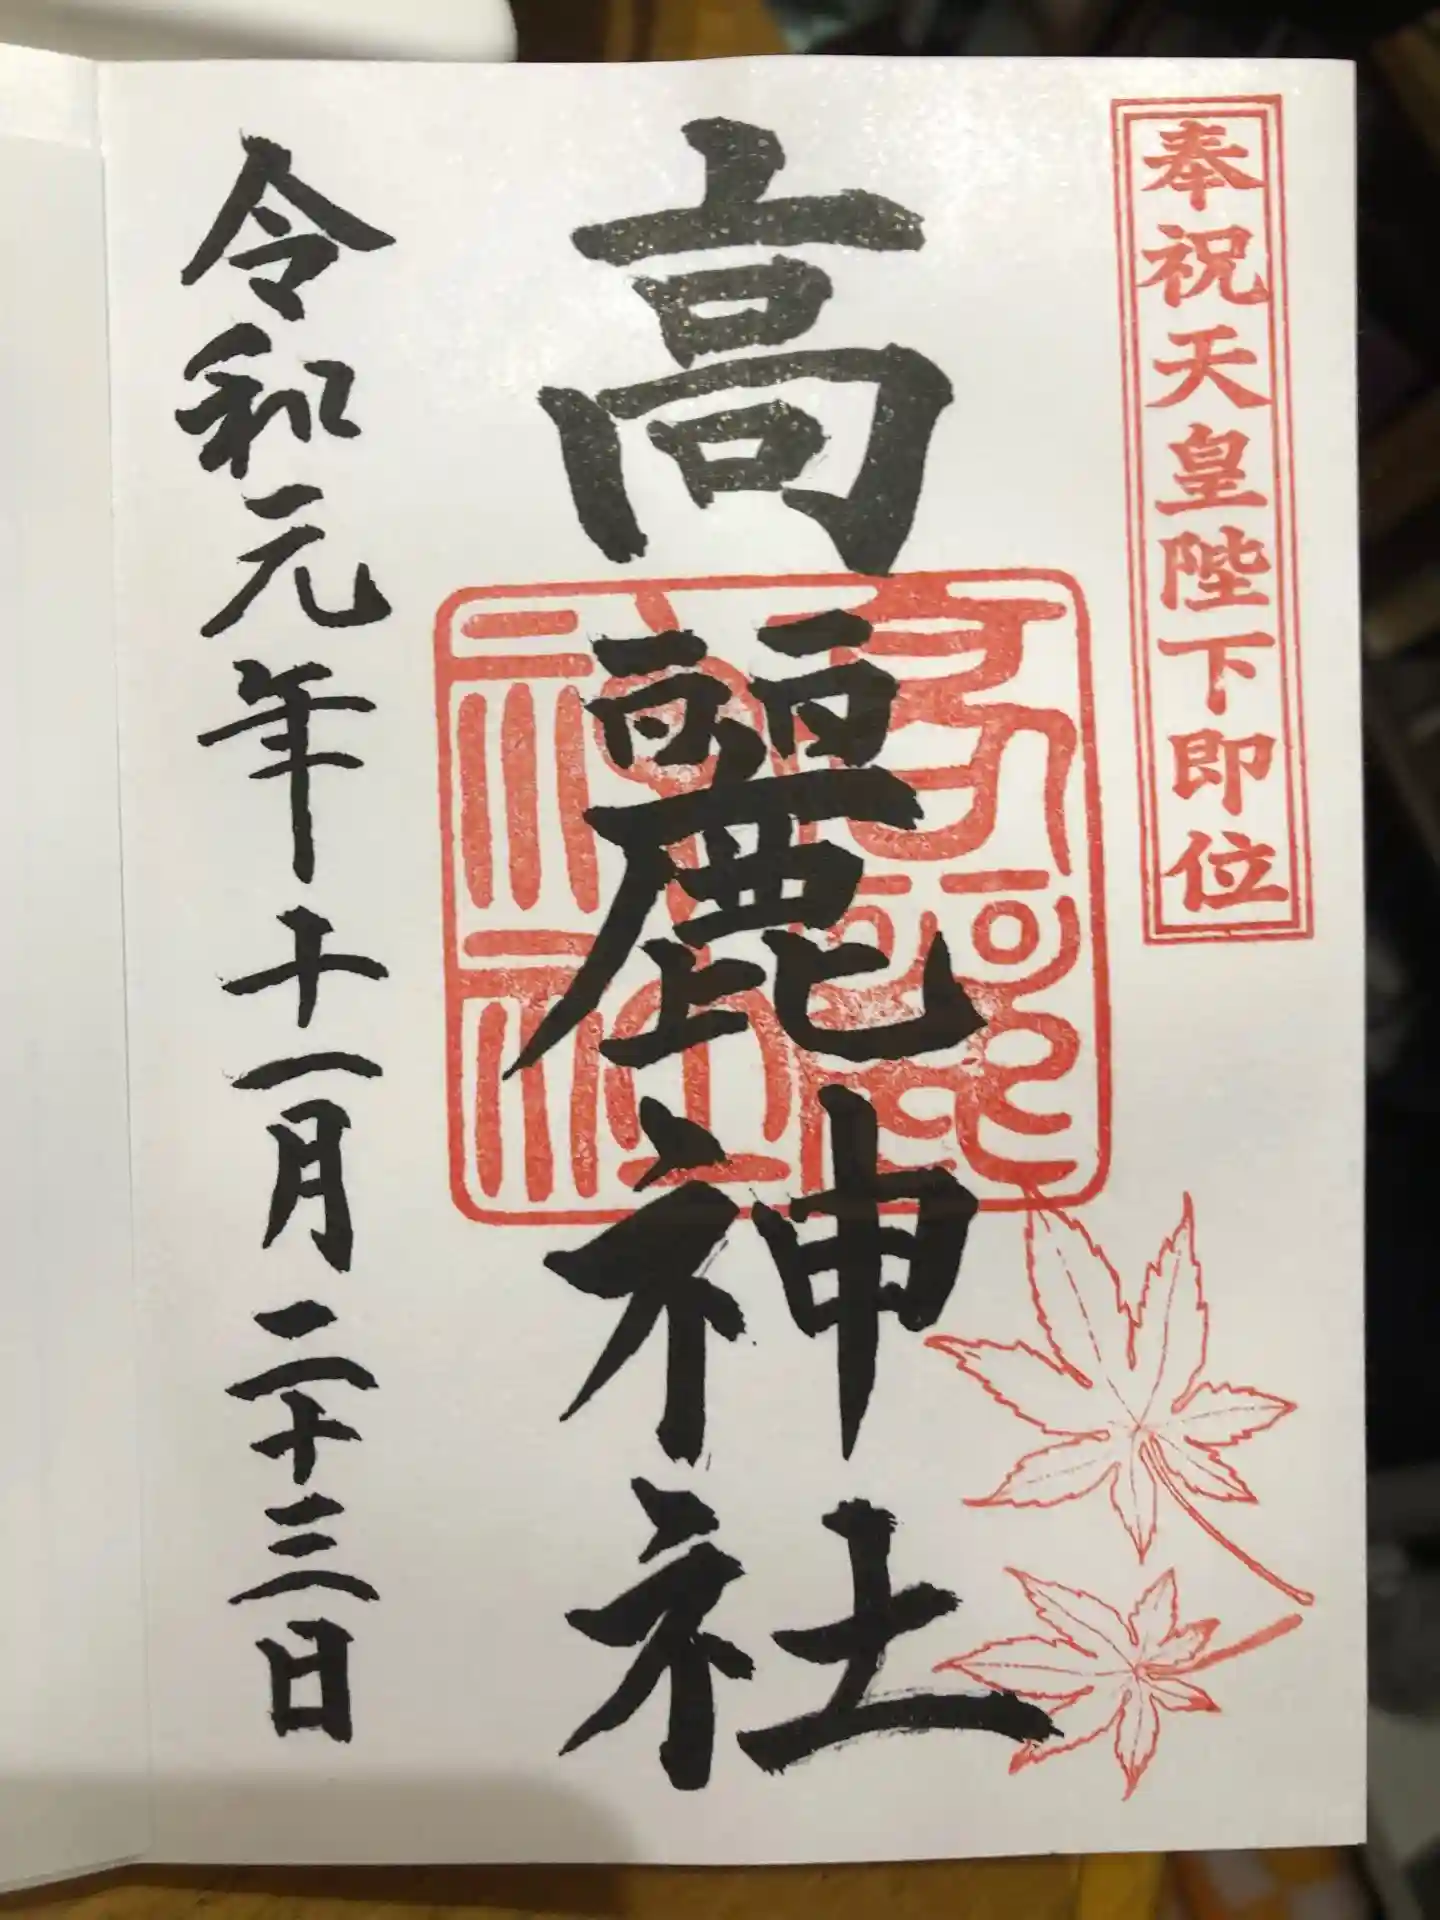 奉祝天皇陛下即位
高麗神社
令和元年十一月二十三日
高麗神社